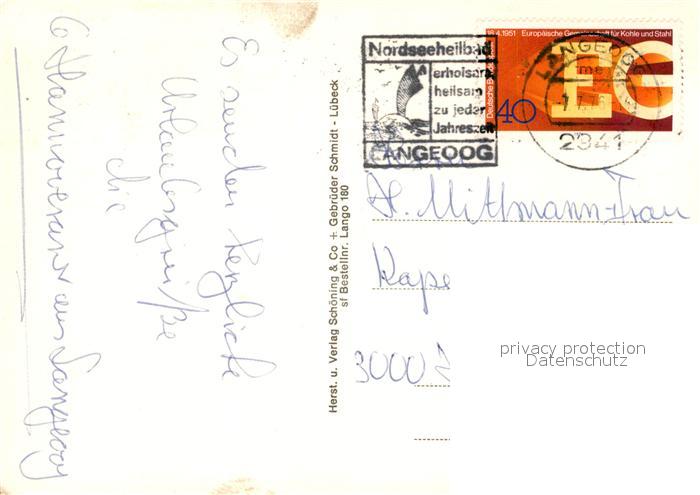 Es senden herzliche
Urlaubsgrüße
die
6 Hannoveraner aus Langeoog
Herst. u. Verlag Schöning & Co + Gebrüder Schmidt - Lübeck
sf Bestellnr. Lango 180
Nordseeheilbad
erholsam
heilsam
zu jeder
Jahreszeit
LANGEOOG
18.4.1951 Europäische Gemeinschaft für Kohle und Stahl
Deutsche Bundespost
40
LANGEOOG
2941
H. Mittmann-Frau
Kape
3000
privacy protection
Datenschutz